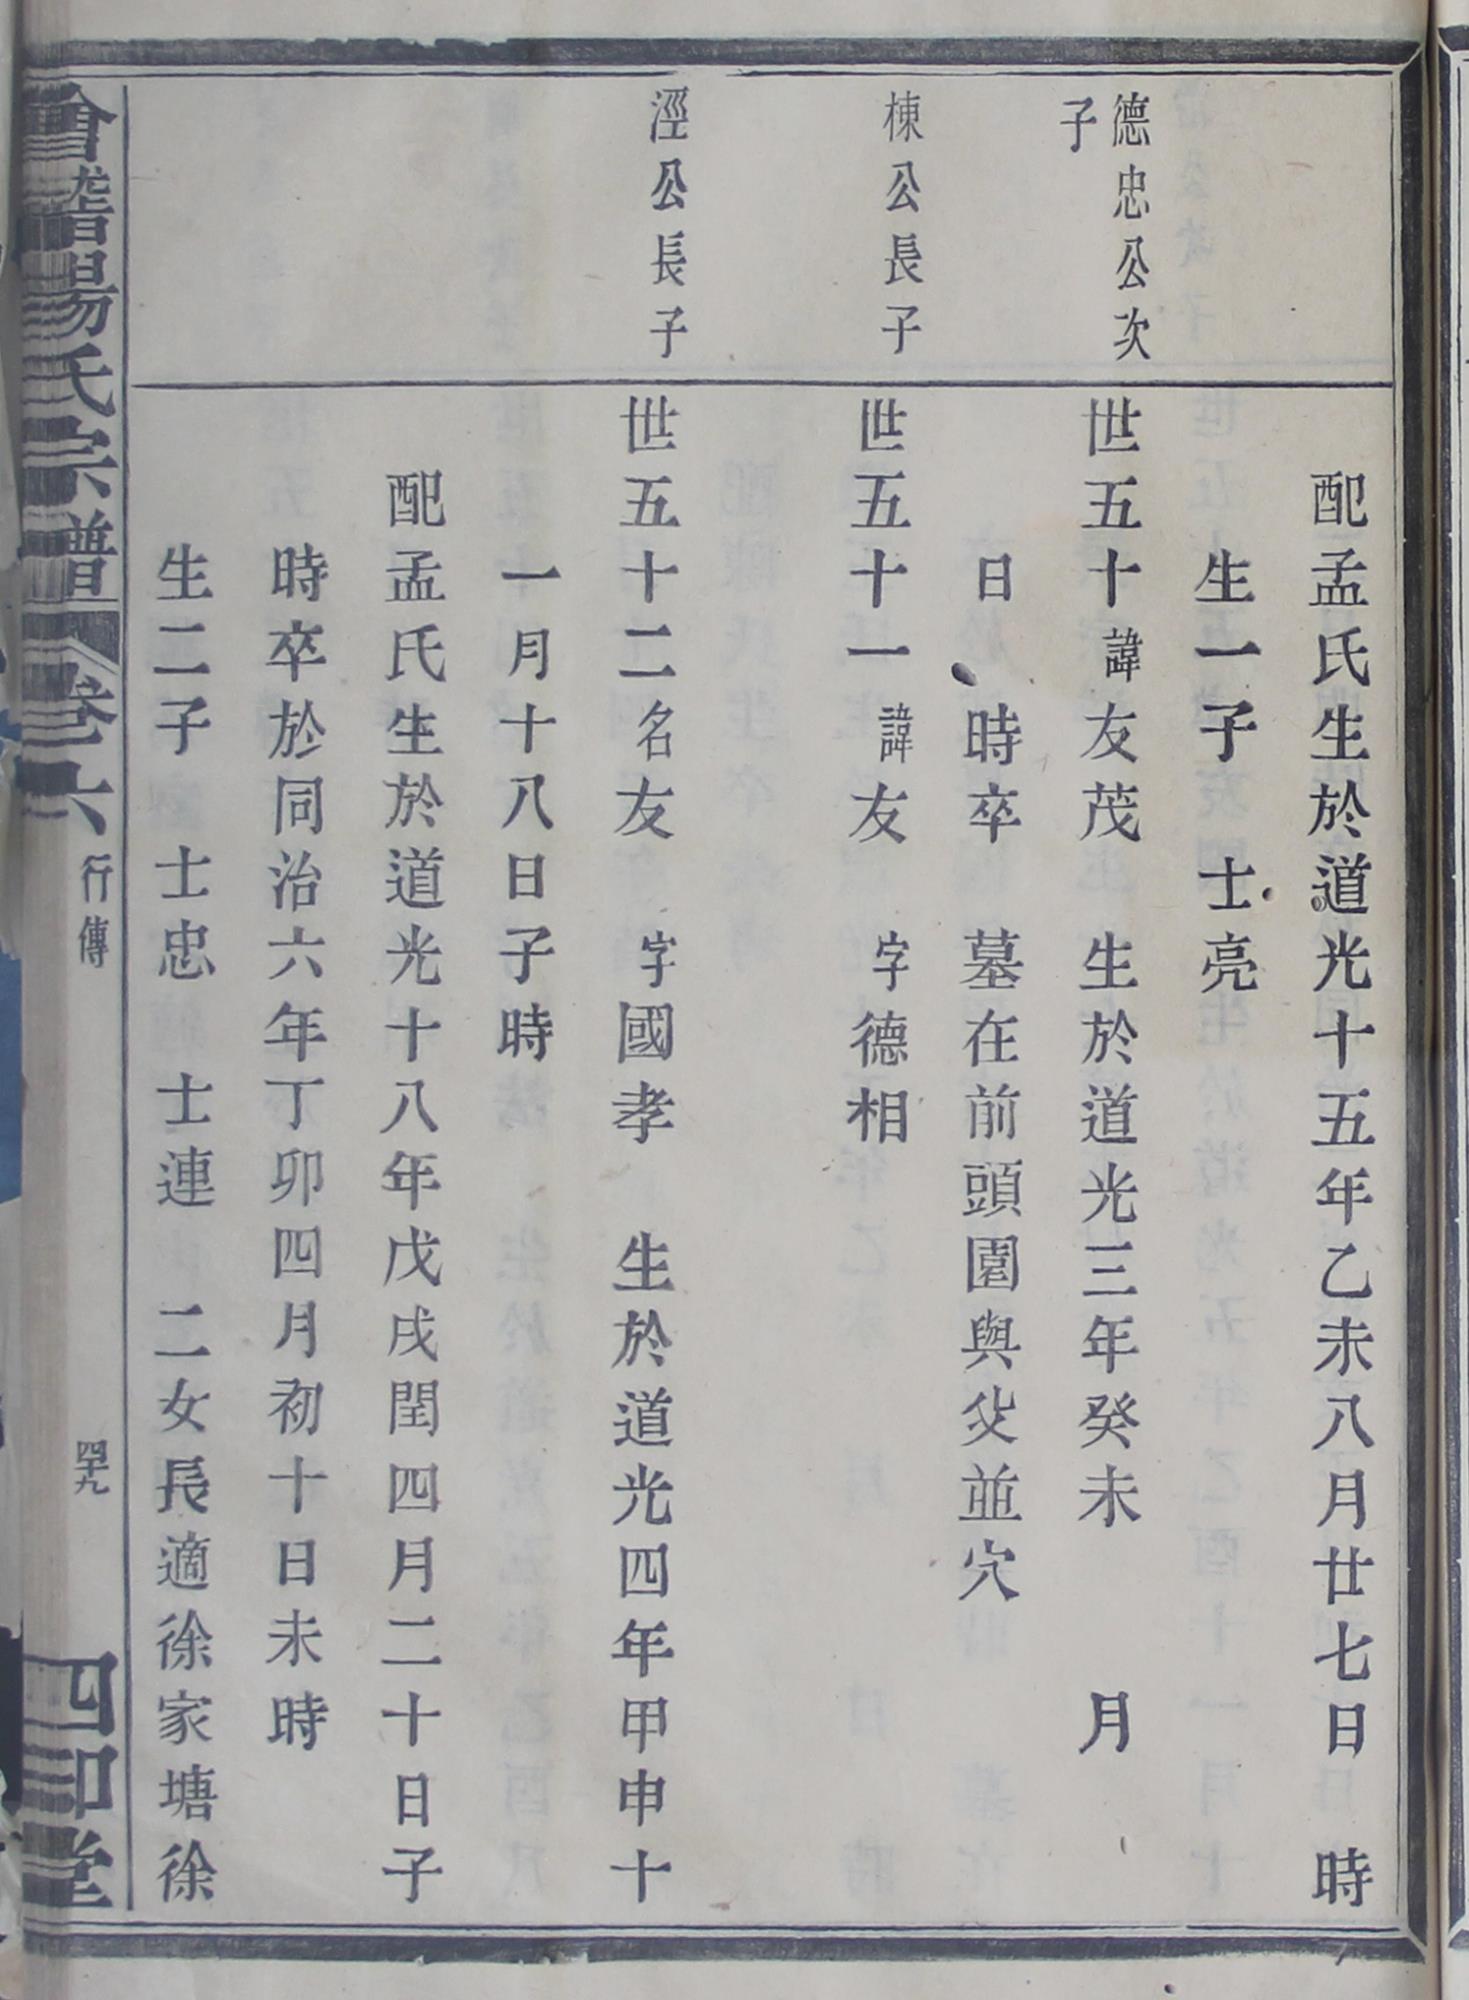 配孟氏生於道光十五年乙未八月廿七日　時
生一子　士亮
德忠公次
子
世五十諱友茂　生於道光三年癸未　　月
日　時卒　墓在前頭園與父並穴
棟公長子
世五十一諱友　字德相
涇公長子
世五十二名友　字國孝　生於道光四年甲申十
一月十八日子時
配孟氏生於道光十八年戊戌閏四月二十日子
時卒於同治六年丁卯四月初十日未時
生二子　士忠　士連　二女長適徐家塘徐
會稽楊氏宗譜　卷六　行傳　四十九　四知堂